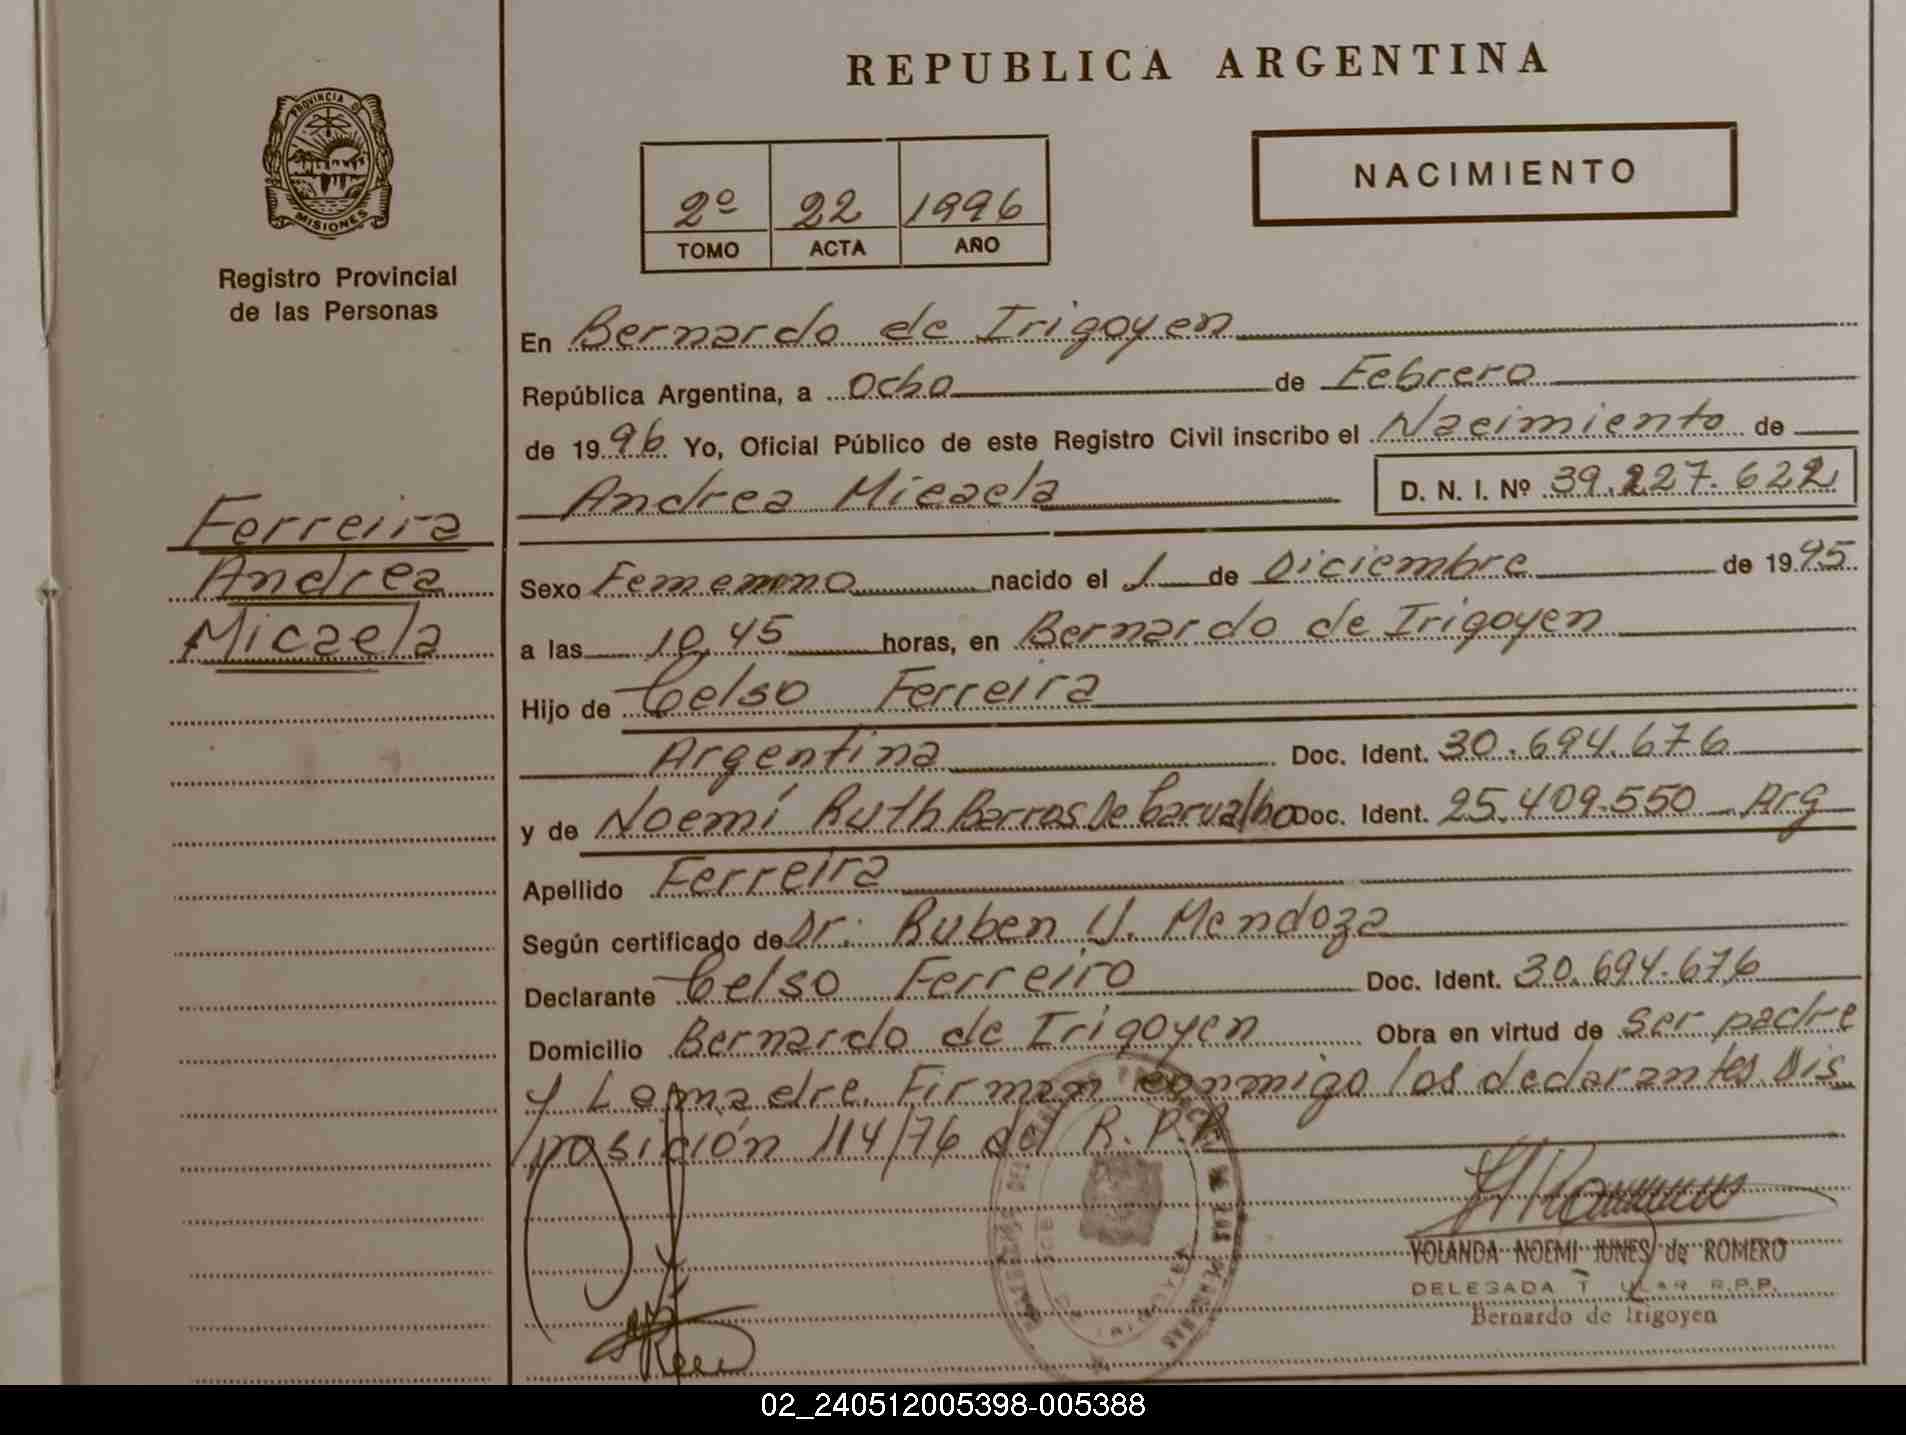 REPUBLICA ARGENTINA
PROVINCIA DE
MISIONES
Registro Provincial
de las Personas
2º 22 1996
TOMO ACTA AÑO
NACIMIENTO
En Bernardo de Irigoyen
República Argentina, a Ocho de Febrero
de 1996 Yo, Oficial Público de este Registro Civil inscribo el Nacimiento de
Andrea Micaela D. N. I. Nº 39.227.622
Ferreira
Andrea
Micaela
Sexo Femenino nacido el 1 de Diciembre de 1995
a las 10,45 horas, en Bernardo de Irigoyen
Hijo de Celso Ferreira
Argentina Doc. Ident. 30.694.676
y de Noemí Ruth Barros De Carvalho Doc. Ident. 25.409.550 Arg
Apellido Ferreira
Según certificado de Dr. Ruben U. Mendoza
Declarante Celso Ferreiro Doc. Ident. 30.694.676
Domicilio Bernardo de Irigoyen Obra en virtud de ser padre
y La madre. Firman conmigo los declarantes. Dis
posición 114/76 del R. P. P.
YOLANDA NOEMI JUNES de ROMERO
DELEGADA R.P.P.
Bernardo de Irigoyen
02_240512005398-005388